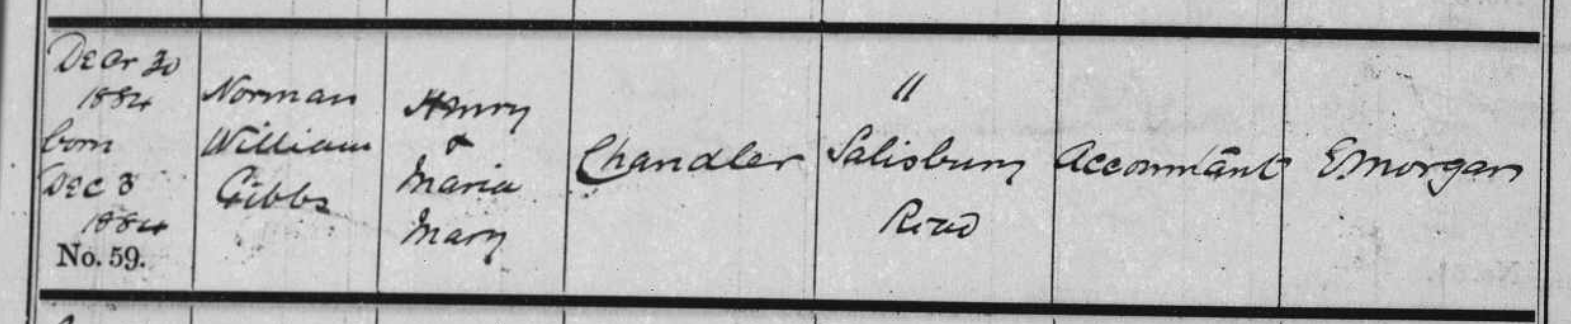 Decr 30
1884
born
Dec 3
1884
No. 59.
Norman
William
Gibbs
Henry
&
Maria
Mary
Chandler
"
Salisbury
Road
Accountant
E Morgan